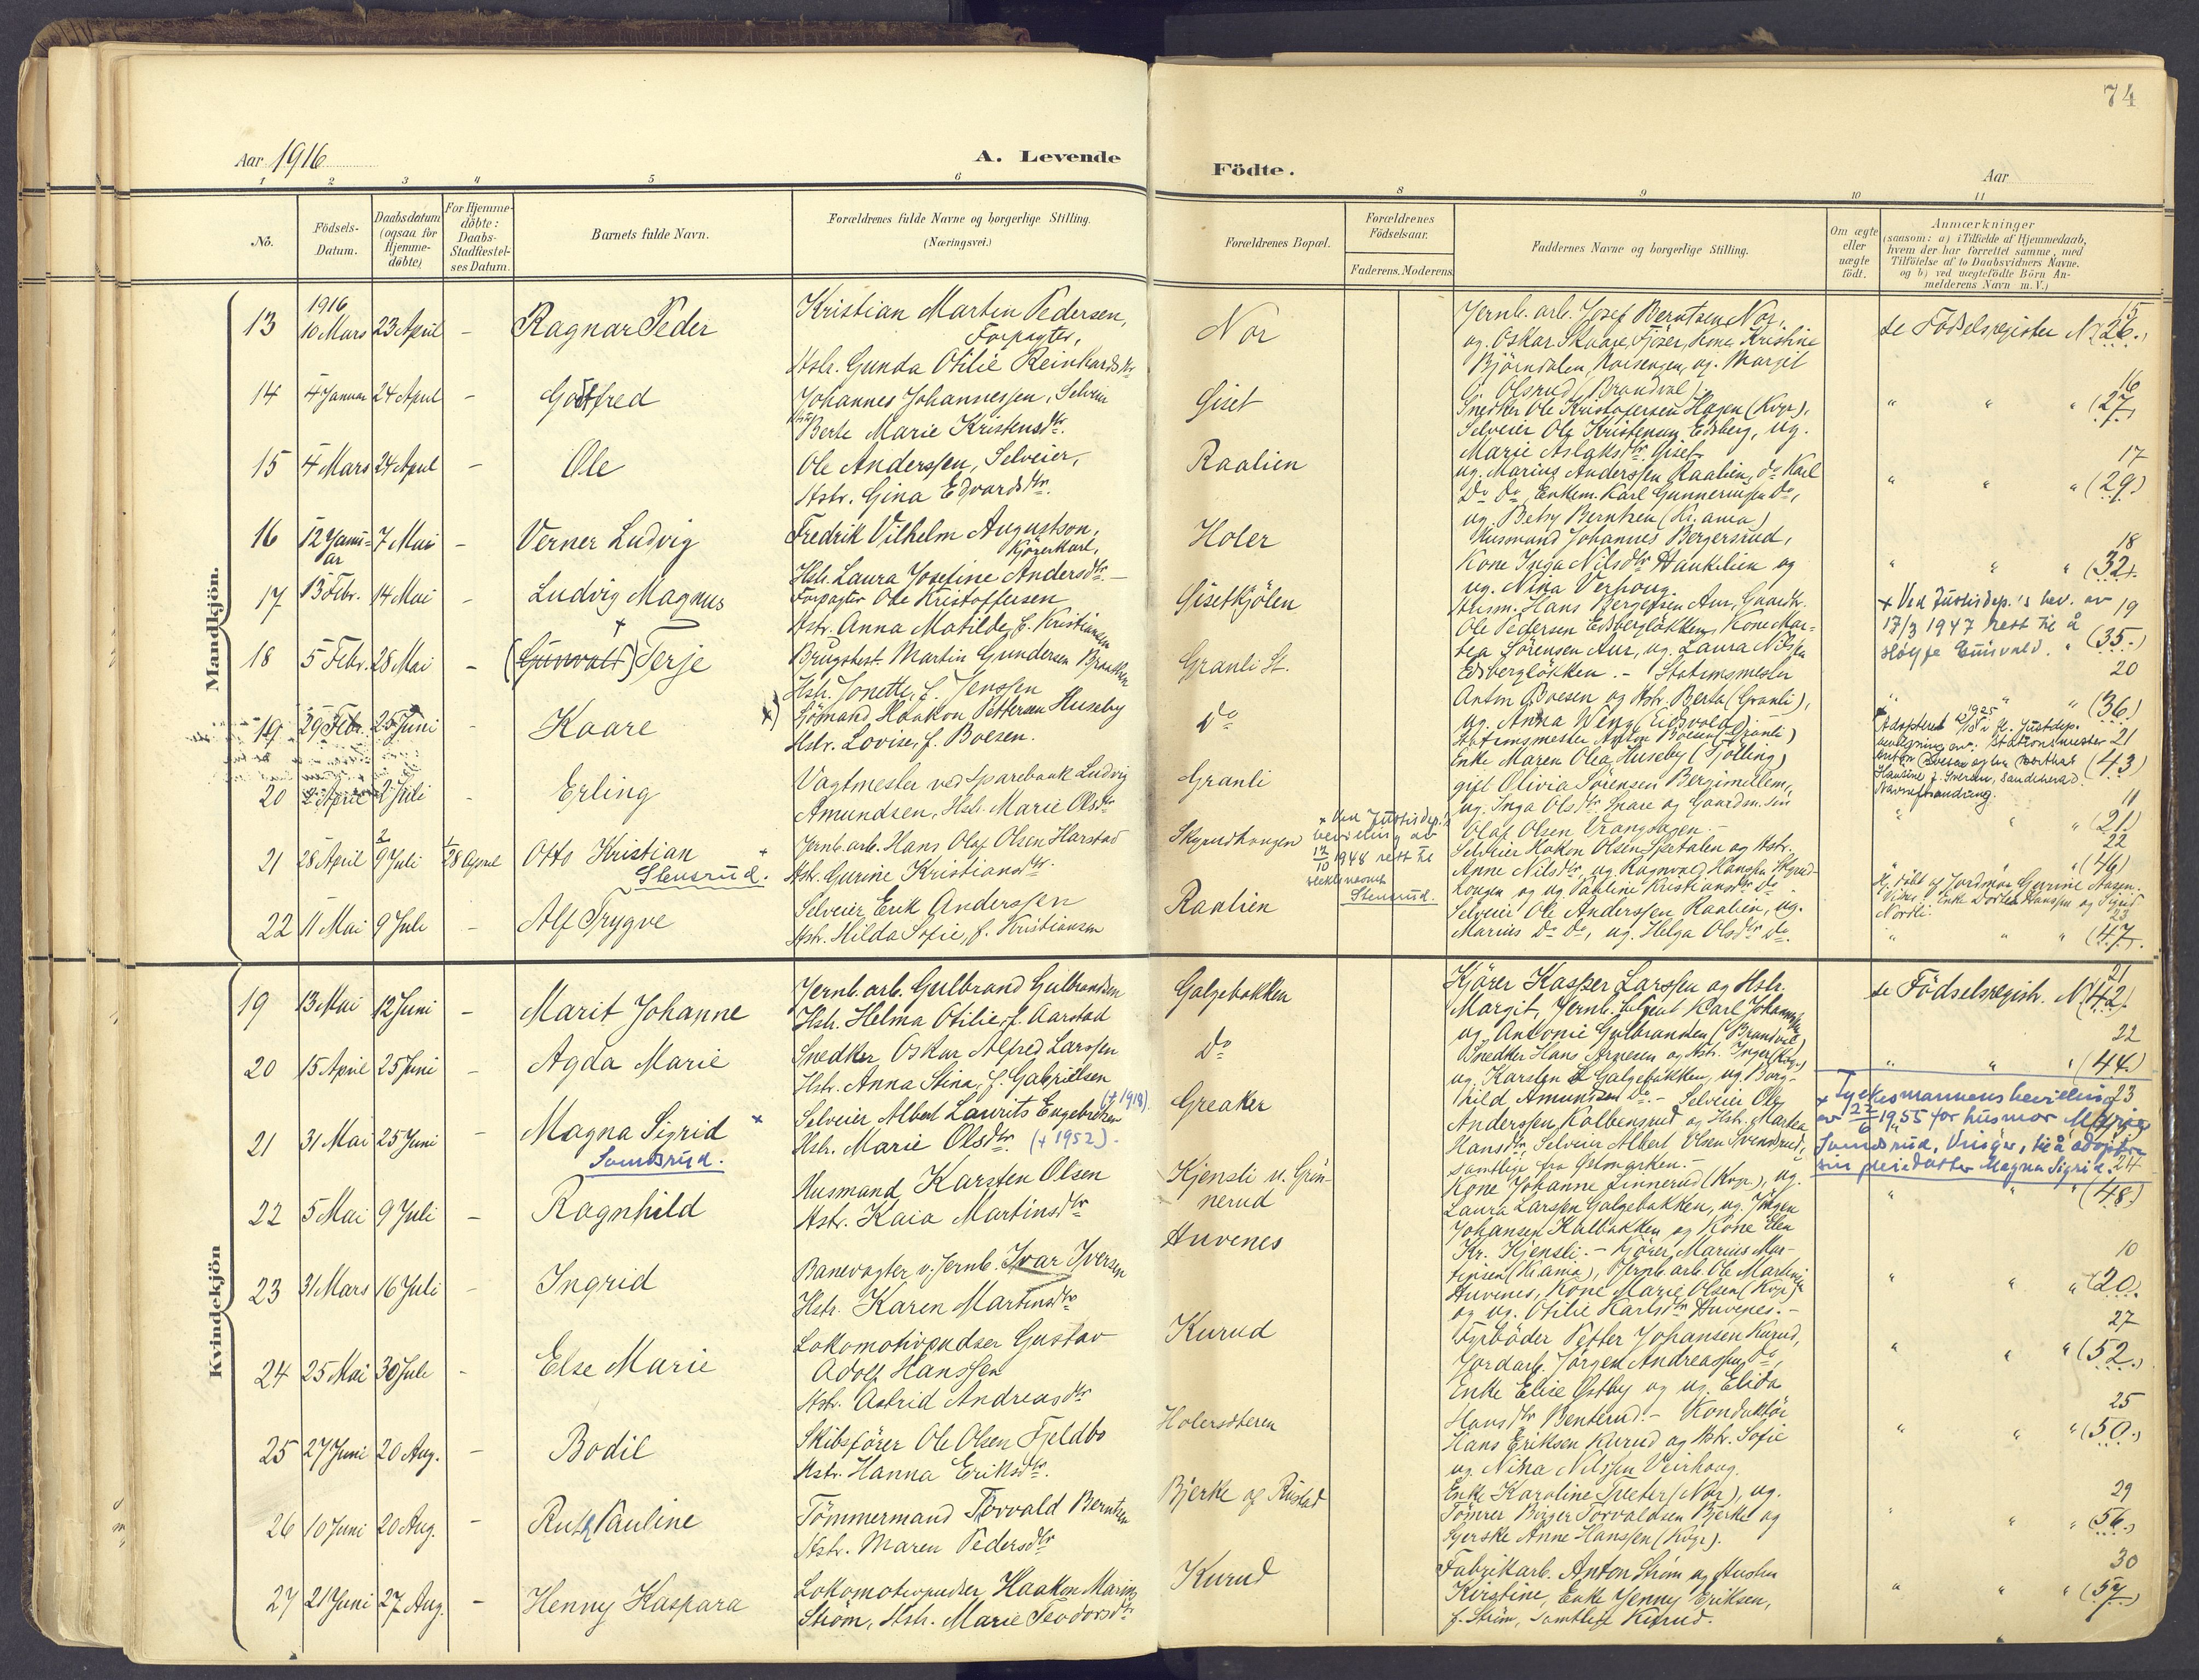 74
Aar 1916
A. Levende
Födte.
Aar
1 2 3 4 5 6 8 9 10 11
No.
Födsels-
Datum.
Daabsdatum
(ogsaa for
Hjemme-
døbte)
For Hjemme-
döbte:
Daabs-
Stadfæstel-
ses Datum.
Barnets fulde Navn.
Forældrenes fulde Navne og borgerlige Stilling.
(Næringsvei.)
Forældrenes Bopæl.
Forældrenes
Födselsaar.
Faderens. Moderens
Faddernes Navne og borgerlige Stilling.
Om ægte
eller
uægte
födt.
Anmærkninger
(saasom: a) i Tilfælde af Hjemmedaab,
hvem der har forrettet samme, med
Tilföielse af to Daabsvidners Navne.
og b) ved uægtefödte Börn An-
melderens Navn m. V.)
Mandkjön.
1916
13 10 Mars 23 April - Ragnar Peder
Kristian Martin Pedersen,
Forpagter,
Hstr. Gunda Otilie Reinhardsdtr
Nor
Jernb. arb. Josef Berntsen Nor,
ug. Oskar Skaare, Kone Kristine
Björndalen, ug. Margit
Olsrud (Brandval).
15
se Födselsregister No (26.)
14 4 Januar 24 April - Gottfred
Johannes Johannessen, Selveier
Berte Marie Kristensdtr.
Giset
Snedker Ole Kristofersen Hagen (Kvgr.),
Selveier Ole Kristensen Edsberg, ug.
Marie Aslaksdtr. Giset
16
" " " (27)
15 4 Mars 24 April - Ole
Ole Anderssen, Selveier,
Hstr. Gina Edvardsdtr.
Raalien
ug. Marius Anderssen Raalien, do Karl
Do Do, Enkem. Karl Gunneriussen Do,
ug. Betsy Berntsen (Kr.ania)
17
" " " (29)
16 12 Janu-
ar 7 Mai - Verner Ludvig
Fredrik Vilhelm Augustson,
Kjørerkarl,
Hstr. Laura Josefine Andersdtr. -
Holer
Husmand Johannes Bergersrud,
Kone Inga Nilsdtr Haukelien og
ug. Nina Verhoug.
18
" " " (32).
17 13 Febr. 14 Mai - Ludvig Magnus
Forpagter Ole Kristoffersen
Hstr. Anna Matilde, f. Kristiansen
Gisetkjölen
Husm. Hans Bergersen Aur, Gaardbr.
Ole Pedersen Edsberglökken, Kone Mar-
tea Sörensen Aur, ug. Laura Nilssen
Edsberglökken. -
+ Ved Justisdep.'s bev. av
17/3 1947 rett til å
sløyfe Gunvald.
19
" (35.)
18 5 Febr. 28 Mai - (Gunvald) Terje +
Brugsbest. Martin Gundersen Braathen
Hstr. Jonette, f. Jenssen
Granli St.
Stationsmester
Anton Boesen og Hstr. Berta (Granli),
ug. Anna Wing (Eidsvold)
20
" " " (36)
19 29 Febr. 25 Juni Kaare
x) Sjömand Haakon Pettersen Huseby
Hstr. Lovise, f. Boesen.
Do
Stationsmester Anton Boesen (Granli)
Enke Maren Olea Huseby (Tjölling)
Adopteret 1925
bevilgning av Stationsmester
Anton Boesen og hu Berthe
Hansine f. Iversen, Sandeherad
Navneforandring.
21
(43)
20 2 April 2 Juli - Erling
Vagtmester ved Sparebank Ludvig
Amundsen, Hstr. Marie Olsdtr
Granli
gift Olivia Sørensen Bergimellem,
ug. Inga Olsdtr Snare og Gaardm. sön
Olaf Olsen Vrangsagen. -
11
" " " (21)
21 28 April 2/9 Juli 1/28 April Otto Kristian +
Stensrud.
Jernb. arb. Hans Olaf Olsen Harstad
Hstr. Gurine Kristiansdtr.
Skyrudhaugen
+ Ved Justisdep.'s
bevilling av
12/10 1948 rett til
slektsnavnet
Stensrud.
Selveier Hakon Olsen Spetalen og Hstr.
Anne Nilsdtr, ug. Ragnvald Hanssen Skyrud-
hougen og ug. Pauline Kristiansdtr do.
22
" (46)
Hj. døbt af Jordmor Gurine Aasen.
Vidner: Enke Dorthea Hanssen og Sigrid
Nordli.
22 11 Mai 9 Juli Alf Trygve
Selveier Erik Anderssen
Hstr. Hilda Sofie, f. Kristiansen
Raalien
Selveier Ole Anderssen Raalien, ug.
Marius Do Do, ug. Helga Olsdtr do.
23
" " " (47).
Kvindekjön
19 13 Mai 12 Juni - Marit Johanne
Jernb. arb. Gulbrand Gulbrandsen
Hstr. Helma Otilie, f. Aarstad
Galgebakken
Kjörer Kasper Larssen og Hstr.
Margit, Jernb. betjent Karl Johannessen
ug. Antonie Gulbrandsen (Brandval)
21
se Födselsregistr. No (42).
20 15 April 25 Juni - Agda Marie
Snedker Oskar Alfred Larssen
Hstr. Anna Stina, f. Gabrielsen
Do
Snedker Hans Arnesen og Hstr. Inger (Kvgr.)
ug. Karsten Galgebakken, ug. Borg-
hild Amundsen Do. -
22
" " " (44.)
21 31 Mai 25 Juni - Magna Sigrid x
Somdsrud.
Selveier Albert Laurits Engebretsen (+1918).
Hstr. Marie Olsdtr. (+1952).
Greaker
Selveier Ole
Anderssen Kolbensrud og Hstr. Martea
Hansdtr, Selveier Albert Olsen Svensrud,
samtlige fra Östmarken. -
x Fylkesmannens bevilling
av 22/6 1955 for husmor Marie
Somdsrud, Vinger, til å adoptere
sin pleiedatter Magna Sigrid.
23
22 5 Mai 9 Juli - Ragnhild
Husmand Karsten Olsen
Hstr. Kaia Martinsdtr
Kjensli u. Grön-
nerud
Kone Johanne Linnerud (Kvgr.), ug.
Laura Larssen Galgebakken, ug. Jörgen
Johansen Kalbakken og Kone Elen
Kr. Kjensli. -
24
" " " (48.)
23 31 Mars 16 Juli Ingrid
Banevogter v. Jernb. Ivar Iversen
Hstr. Karen Martinsdtr
Auvenes
Kjörer Marius Mar-
tinsen (Kr.ania), Jernb. arb. Ole Martinsen
Auvenes, Kone Marie Olsen (Kvgr.)
og ug. Otilie Karlsdtr Auvenes. -
10
" " " (20)
24 25 Mai 30 Juli - Else Marie
Lokomotivpudser Gustav
Adolf Hanssen
Hstr. Astrid Andreasdtr
Kurud
Fyrböder Petter Johansen Kurud,
Jordarb. Jörgen Andreassen do,
Enke Elise Østby og ug. Elida
Hansdtr Benterud. -
27
" " " (52.)
25 27 Juni 20 Aug. - Bodil
Skibsförer Ole Olsen Fjeldbo
Hstr. Hanna Eriksdtr.
Holersæteren
Konduktör
Hans Eriksen Kurud og Hstr. Sofie
ug. Nina Nilssen Veirhoug.
25
" " " (50.)
26 10 Juni 20 Aug. - Ruth Pauline
Tömmermand Torvald Berntsen
Hstr. Maren Pedersdtr
Bjerke og Rustad
Enke Karoline Træter (Nor), ug.
Tömrer Birger Torvaldsen Bjerke og
Syerske Anne Hanssen (Kvgr.).
29
" " " (56.)
27 21 Juni 27 Aug. - Henny Kaspara
Lokomotivpudser Haakon Marius
Ström, Hstr. Marie Teodorsdtr
Kurud
Fabrikarb. Anton Ström og Hustru
Kirstine, Enke Jenny Eriksen,
f. Ström, samtlige Kurud.
30
" " " (57)